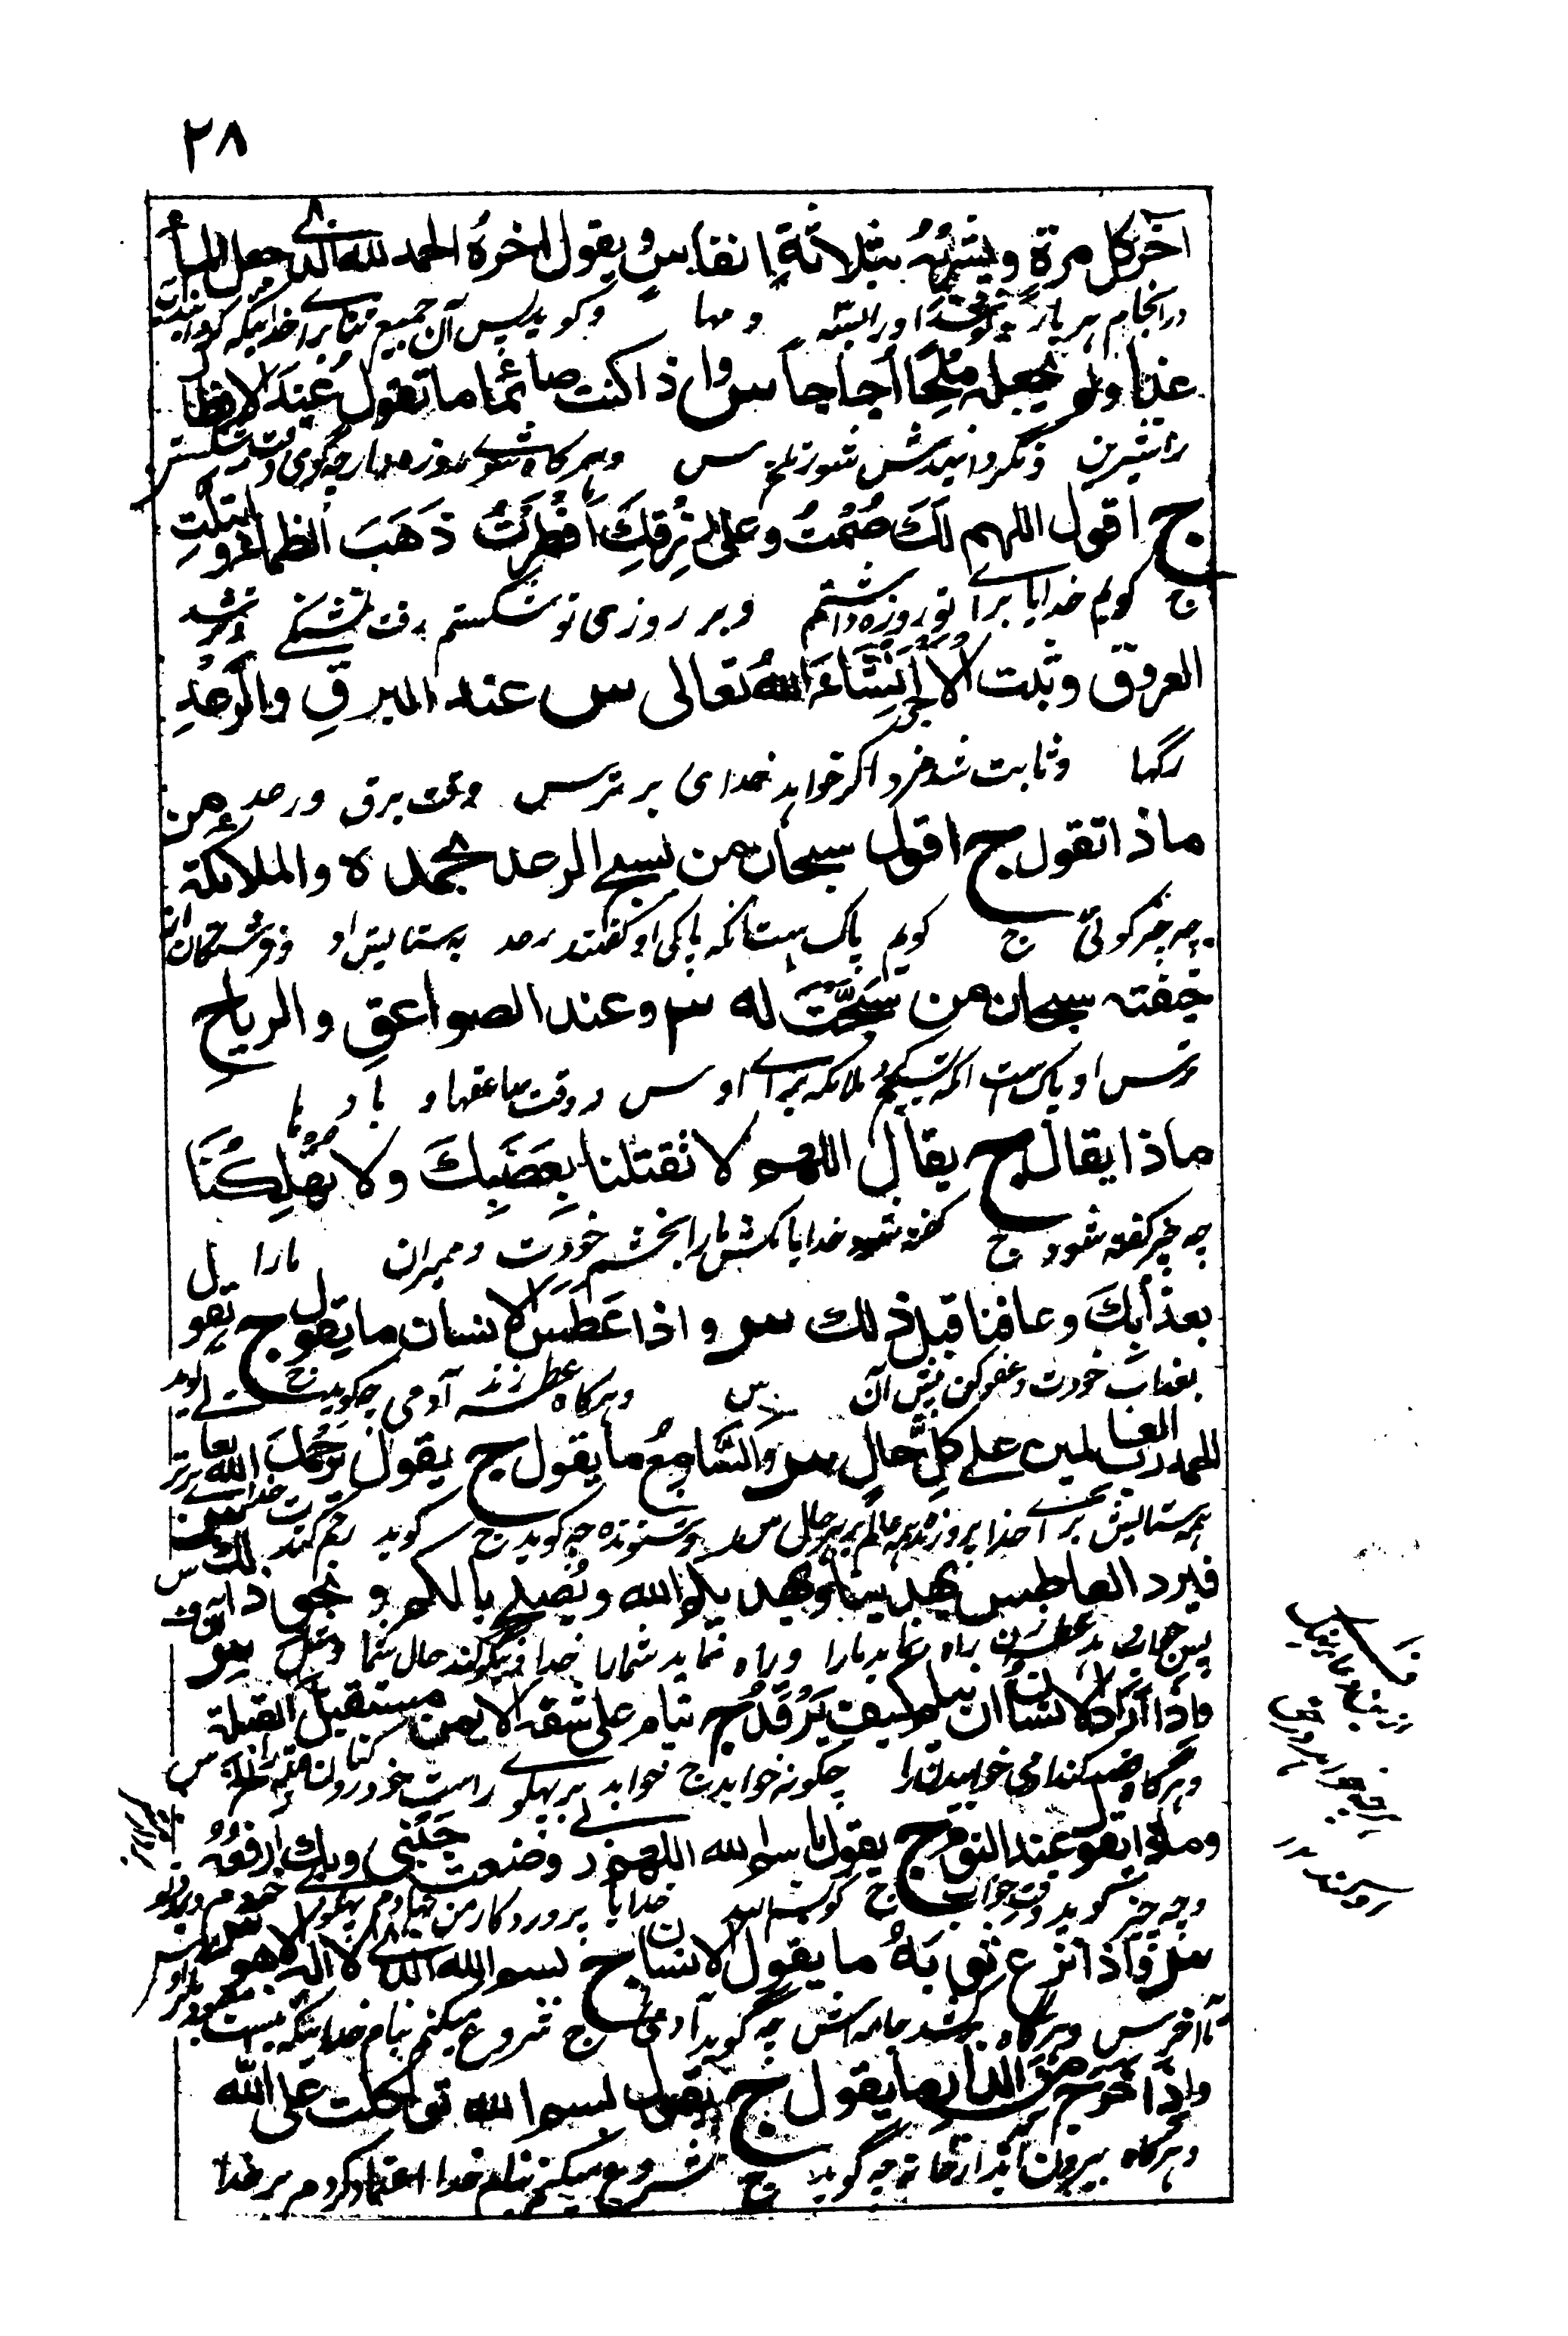 ٢٨
آخر كل مرة ويشربه بثلاثة انفاس ويقول اخره الحمد لله الذي جعل الماء
در انجام هر بار و او را البته و مها و گوید پس آن جمیع ثنا برای خدائیکه گردانید آب
عذبا ولم يجعله ملحا اجاجا س واذا كنت صائما ما تقول عند الافطار
را شیرین و نگردانیدش شور تلخ س و هرگاه شوی روزه دار چه گوی وقت شکستن
ج اقول اللهم لك صمت وعلى رزقك افطرت ذهب الظماء وابتلت
ج گویم خدایا برای تو روزه داشتم و بر روزی تو شکستم رفت تشنگی و تر شد
العروق وثبت الاجر ان شاء الله تعالى س عند البرق والرعد
رگها و ثابت شد مزد اگر خواهد خدای برتر س وقت برق و رعد
ماذا تقول ج اقول سبحان من يسبح الرعد بحمده والملائكة من
چه چیز گوئی ج گویم پاک است آنکه پاکی او گفتند رعد به ستایش او و فرشتگان از
خيفته سبحان من سبحت له س وعند الصواعق والرياح
ترس او پاک است آنکه تسبیح ملائکه برای او س در وقت صاعقها و بادها
ماذا يقال ج يقال اللهم لا تقتلنا بغضبك ولا تهلكنا
چه چیز گفته شود ج گفته شود خدایا مکش مارا بخشم خودت و ممیران مارا
بعذابك وعافنا قبل ذلك س واذا عطس الانسان ما يقول ج يقول
بعذاب خودت و عفو کن پیش آن س و هرگاه عطسه زند آدمی چه گوید ج گوید
الحمد لله رب العالمين على كل حال س والسامع ما يقول ج يقول يرحمك الله
همه ستایش برای خدا عالم بر هر حال س و شنونده چه گوید ج گوید رحم کند
فيرد العاطس يهدينا ويهديكم الله ويصلح بالكم ونحو ذلك س
پس جواب بدهد عطسه زن راه نماید مارا و راه نماید شمارا خدا و نیکو کند حال شما و مثل
واذا اراد الانسان ان ينام كيف يرقد ج ينام على شقه الايمن مستقبل القبلة
و هرگاه قصد کند آدمی خوابیدن را چگونه خوابد ج خوابد بر پهلوی راست خود
وماذا يقول عند النوم ج يقول باسم الله اللهم ربي وضعت جنبي وبك ارفعه
و چه چیز گوید وقت خواب ج گوید خدایا پروردگار من نهادم پهلوی خود
س واذا نزع ثوبه ما يقول الانسان ج بسم الله الذي لا اله الا هو
تا آخر س و هرگاه بکشد جامه اش چه گوید آدمی ج شروع میکنم بنام خدائیکه نیست
واذا خرج من الدار ما يقول ج يقول بسم الله توكلت على الله
و هرگاه بیرون آید از خانه چه گوید ج شروع میکنم بنام خدا اعتماد کردم بر خدا